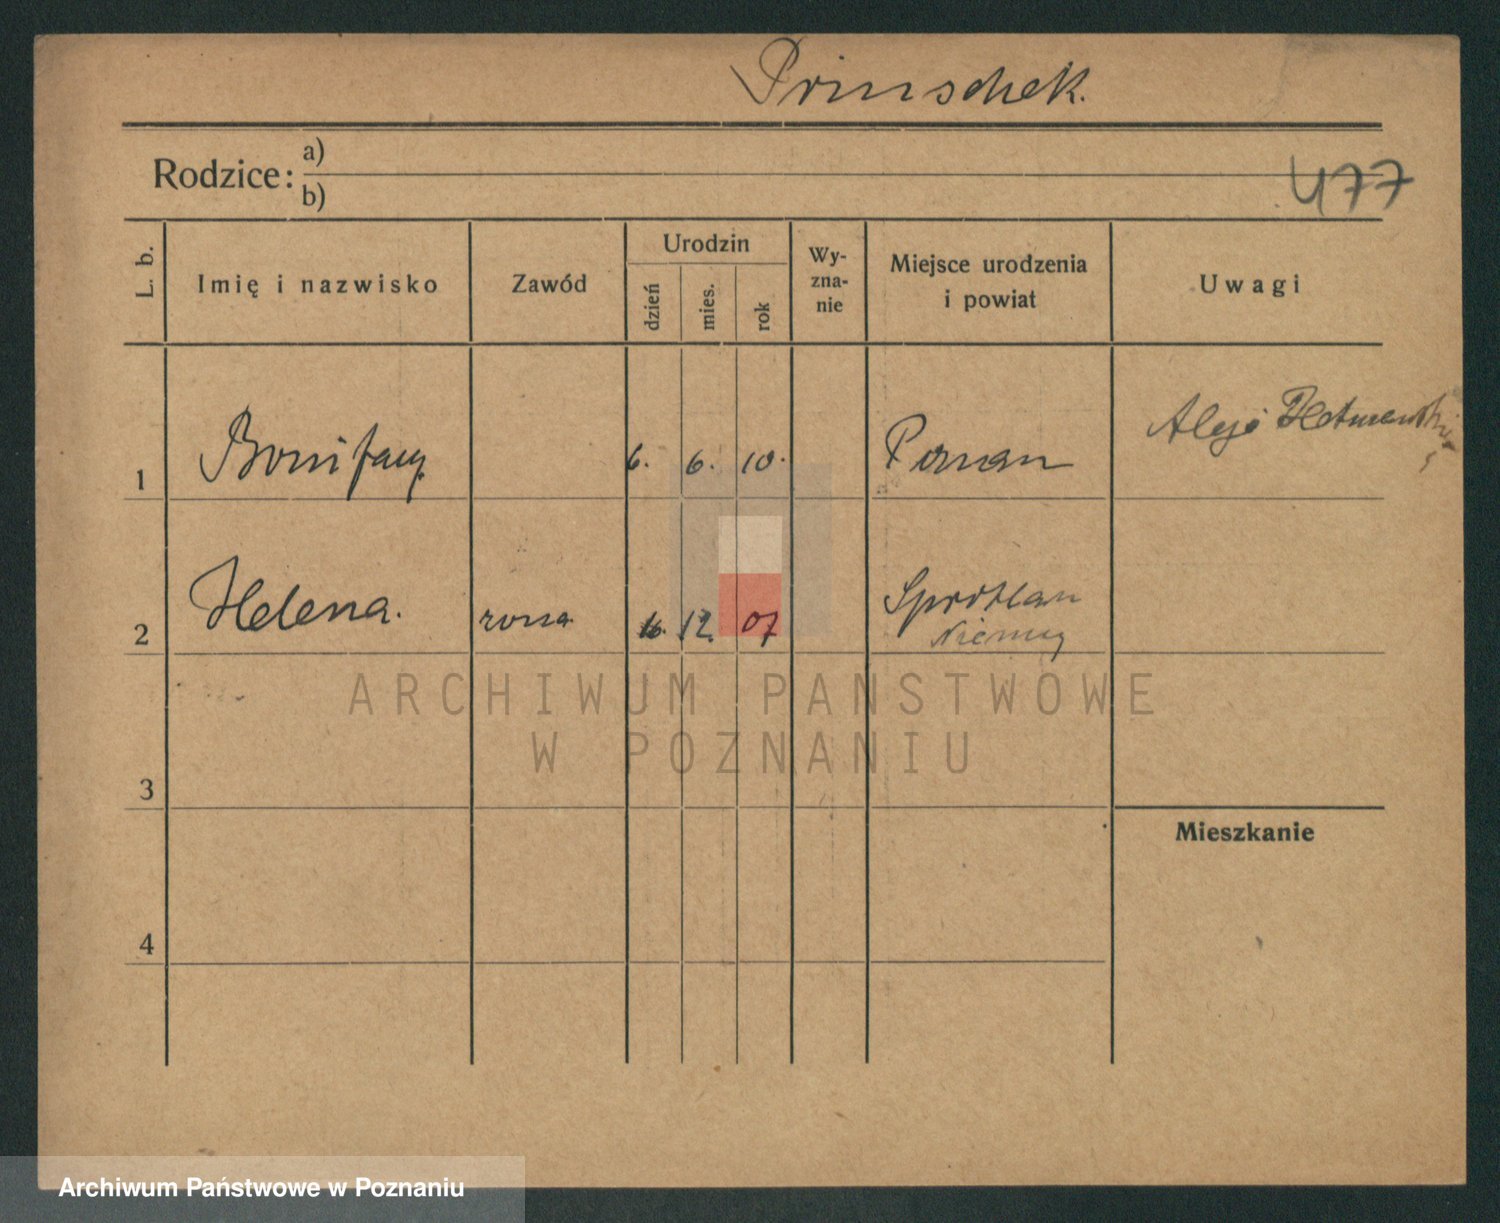 Prinschek.
Rodzice: a)
b)
477
L. b.
Imię i nazwisko
Zawód
Urodzin
dzień
mies.
rok
Wy-
zna-
nie
Miejsce urodzenia
i powiat
Uwagi
1 Bonifacy 6. 6. 10. Poznan
2 Helena. zona 16. 12. 07 Sprottau
Niemcy
3
Mieszkanie
4
ARCHIWUM PANSTWOWE
W POZNANIU
Archiwum Państwowe w Poznaniu